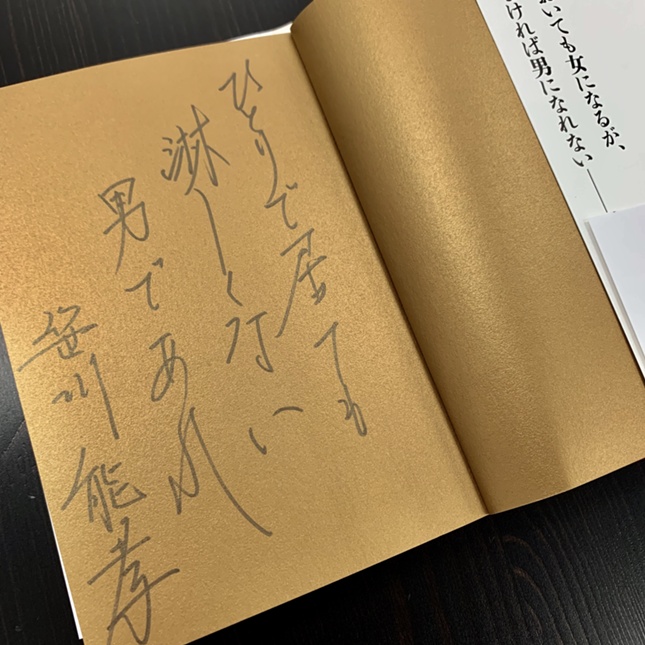 ひとりで居ても
淋しく行い
男であれ
笹川能孝
いても女になるが、
ければ男になれない――